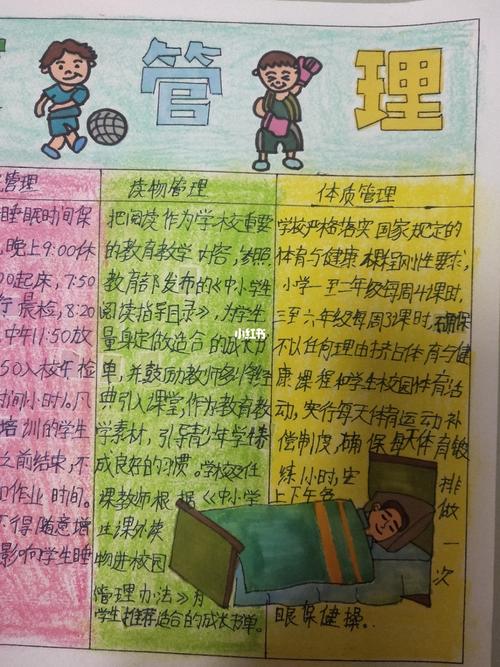 管理
管理
睡眠时间保
晚上9:00休
00起床,7:50
行晨检,8:20
中午11:50放
50入校午检
时间小时)。凡
培训的学生
之前结束,不
和作业时间。
不得随意增
影响学生睡
读物管理
把阅读作为学校重要
的教育教学内容,参照
教育部发布的《中小学生
阅读指导目录》,为学生
量身定做适合的成长书
单,并鼓励教师多将经
典引入课堂,作为教育教
学素材,引导青少年学生养
成良好的习惯。学校责任
课教师根据《中小学
生课外读
物进校园
管理办法》为
学生推荐适合的成长书单。
体质管理
学校严格落实国家规定的
体育与健康课程刚性要求,
小学一至二年级每周4课时,
三至六年级每周3课时,确保
不以任何理由挤占体育与健
康课程和学生校园体育活
动,实行每天体育运动补
偿制度,确保每天体育锻
炼小时,安排
上下午各做一次
眼保健操。
小红书